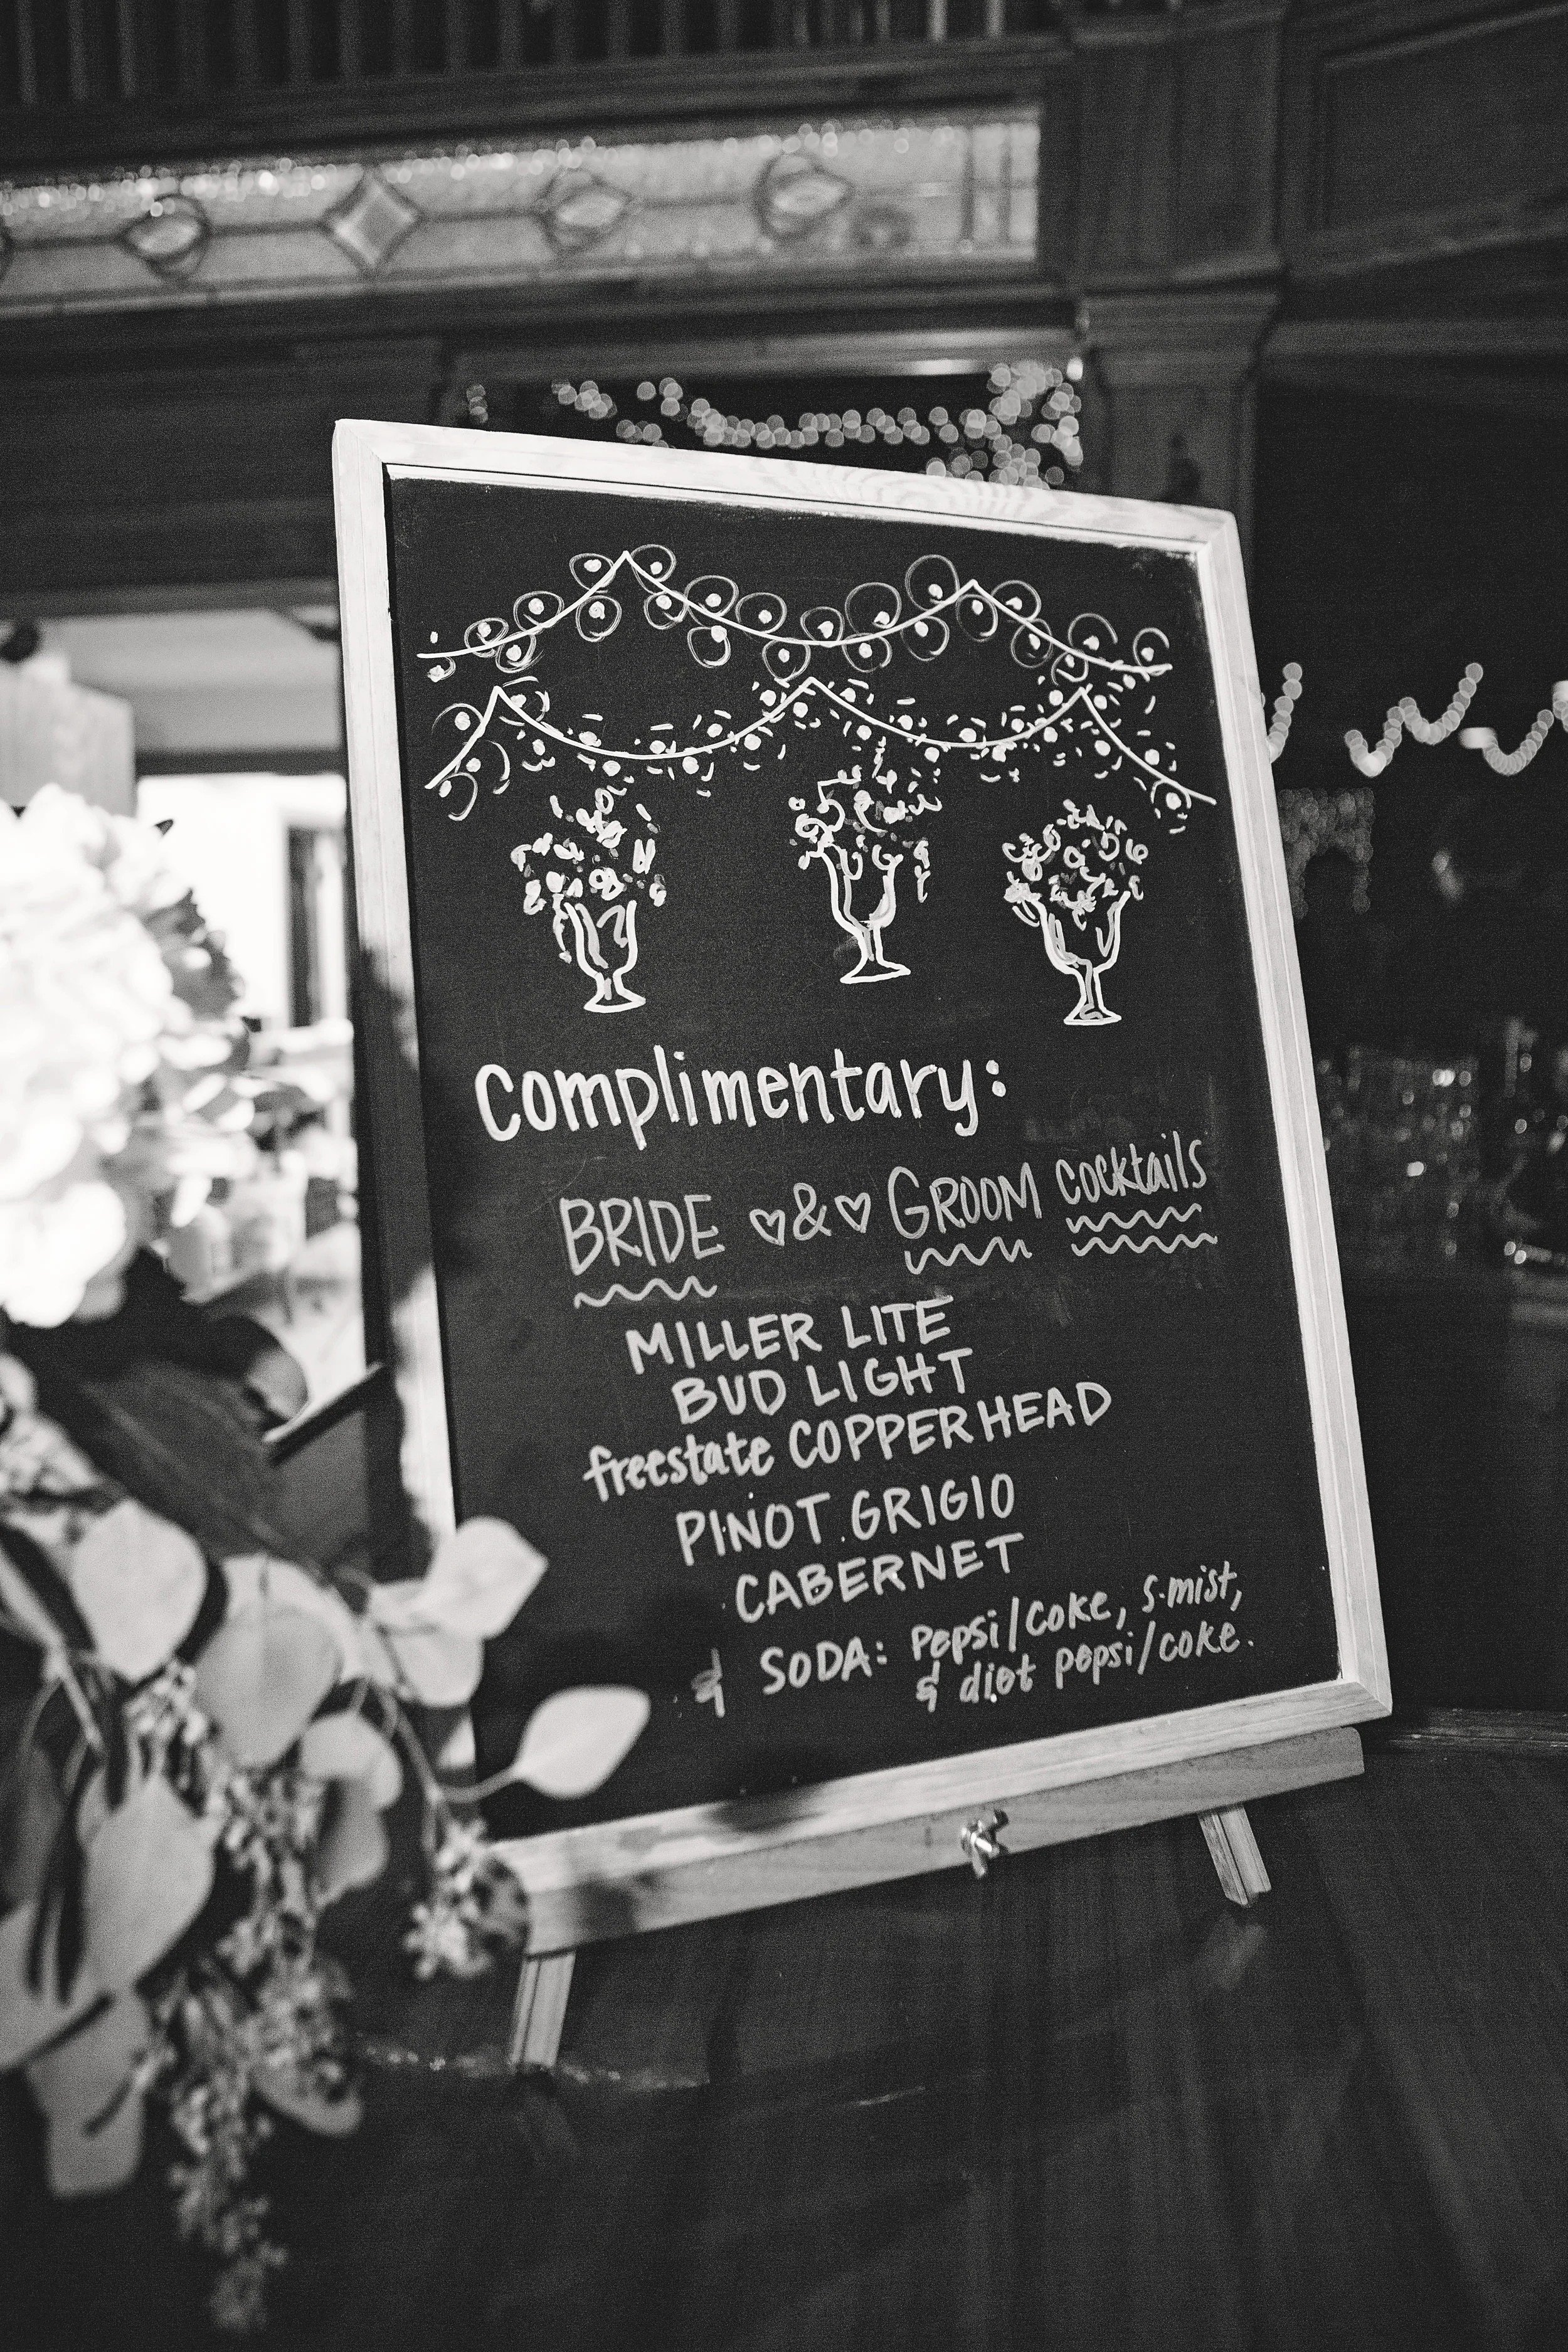 Complimentary:
BRIDE ♡&♡ GROOM cocktails
MILLER LITE
BUD LIGHT
freestate COPPERHEAD
PINOT GRIGIO
CABERNET
& SODA: Pepsi/Coke, S.mist,
& diet pepsi/coke.